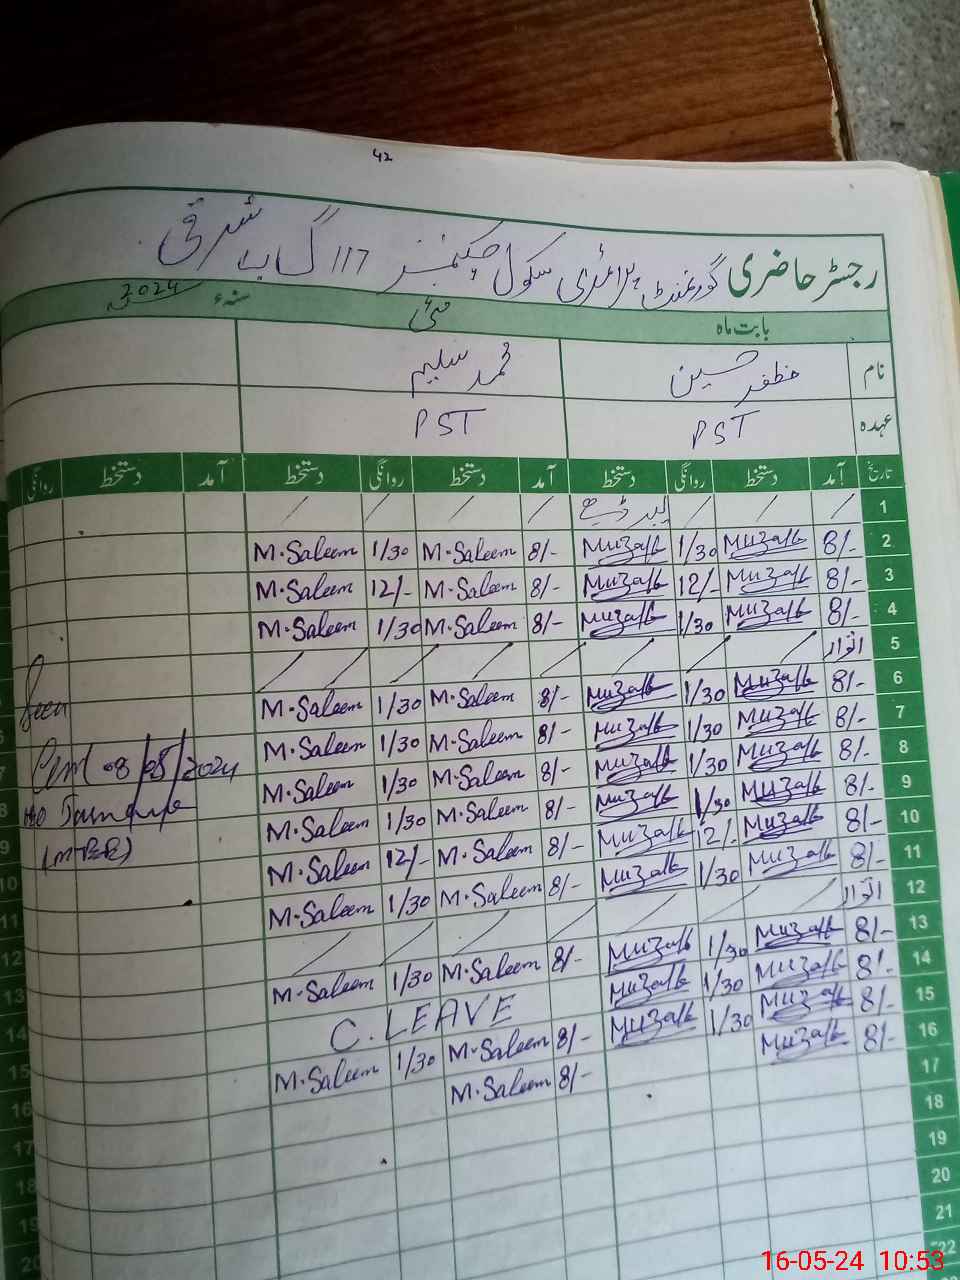 42
رجسٹر حاضری گورنمنٹ پرائمری سکول 117 گ ب شرقی
بابت ماہ مئی سنہء 2024
نام مظفر حسین محمد سلیم
عہدہ PST PST
تاریخ آمد دستخط روانگی دستخط آمد دستخط روانگی دستخط آمد دستخط روانگی
1 / / / لیبر ڈے / / / /
2 8/- Muzaffr 1/30 Muzaffr 8/- M.Saleem 1/30 M.Saleem
3 8/- Muzaffr 12/- Muzaffr 8/- M.Saleem 12/- M.Saleem
4 8/- Muzaffr 1/30 Muzaffr 8/- M.Saleem 1/30 M.Saleem
5 اتوار / / / / / / /
6 8/- Muzaffr 1/30 Muzaffr 8/- M.Saleem 1/30 M.Saleem
7 8/- Muzaffr 1/30 Muzaffr 8/- M.Saleem 1/30 M.Saleem
8 8/- Muzaffr 1/30 Muzaffr 8/- M.Saleem 1/30 M.Saleem
9 8/- Muzaffr 1/30 Muzaffr 8/- M.Saleem 1/30 M.Saleem
10 8/- Muzaffr 12/- Muzaffr 8/- M.Saleem 12/- M.Saleem
11 8/- Muzaffr 1/30 Muzaffr 8/- M.Saleem 1/30 M.Saleem
12 اتوار / / / / / / /
13 8/- Muzaffr 1/30 Muzaffr 8/- M.Saleem 1/30 M.Saleem
14 8/- Muzaffr 1/30 Muzaffr C. LEAVE
15 8/- Muzaffr 1/30 Muzaffr 8/- M.Saleem 1/30 M.Saleem
16 8/- Muzaffr 8/- M.Saleem
17
18
19
20
21
22
Seen
08/05/2024
16-05-24 10:53